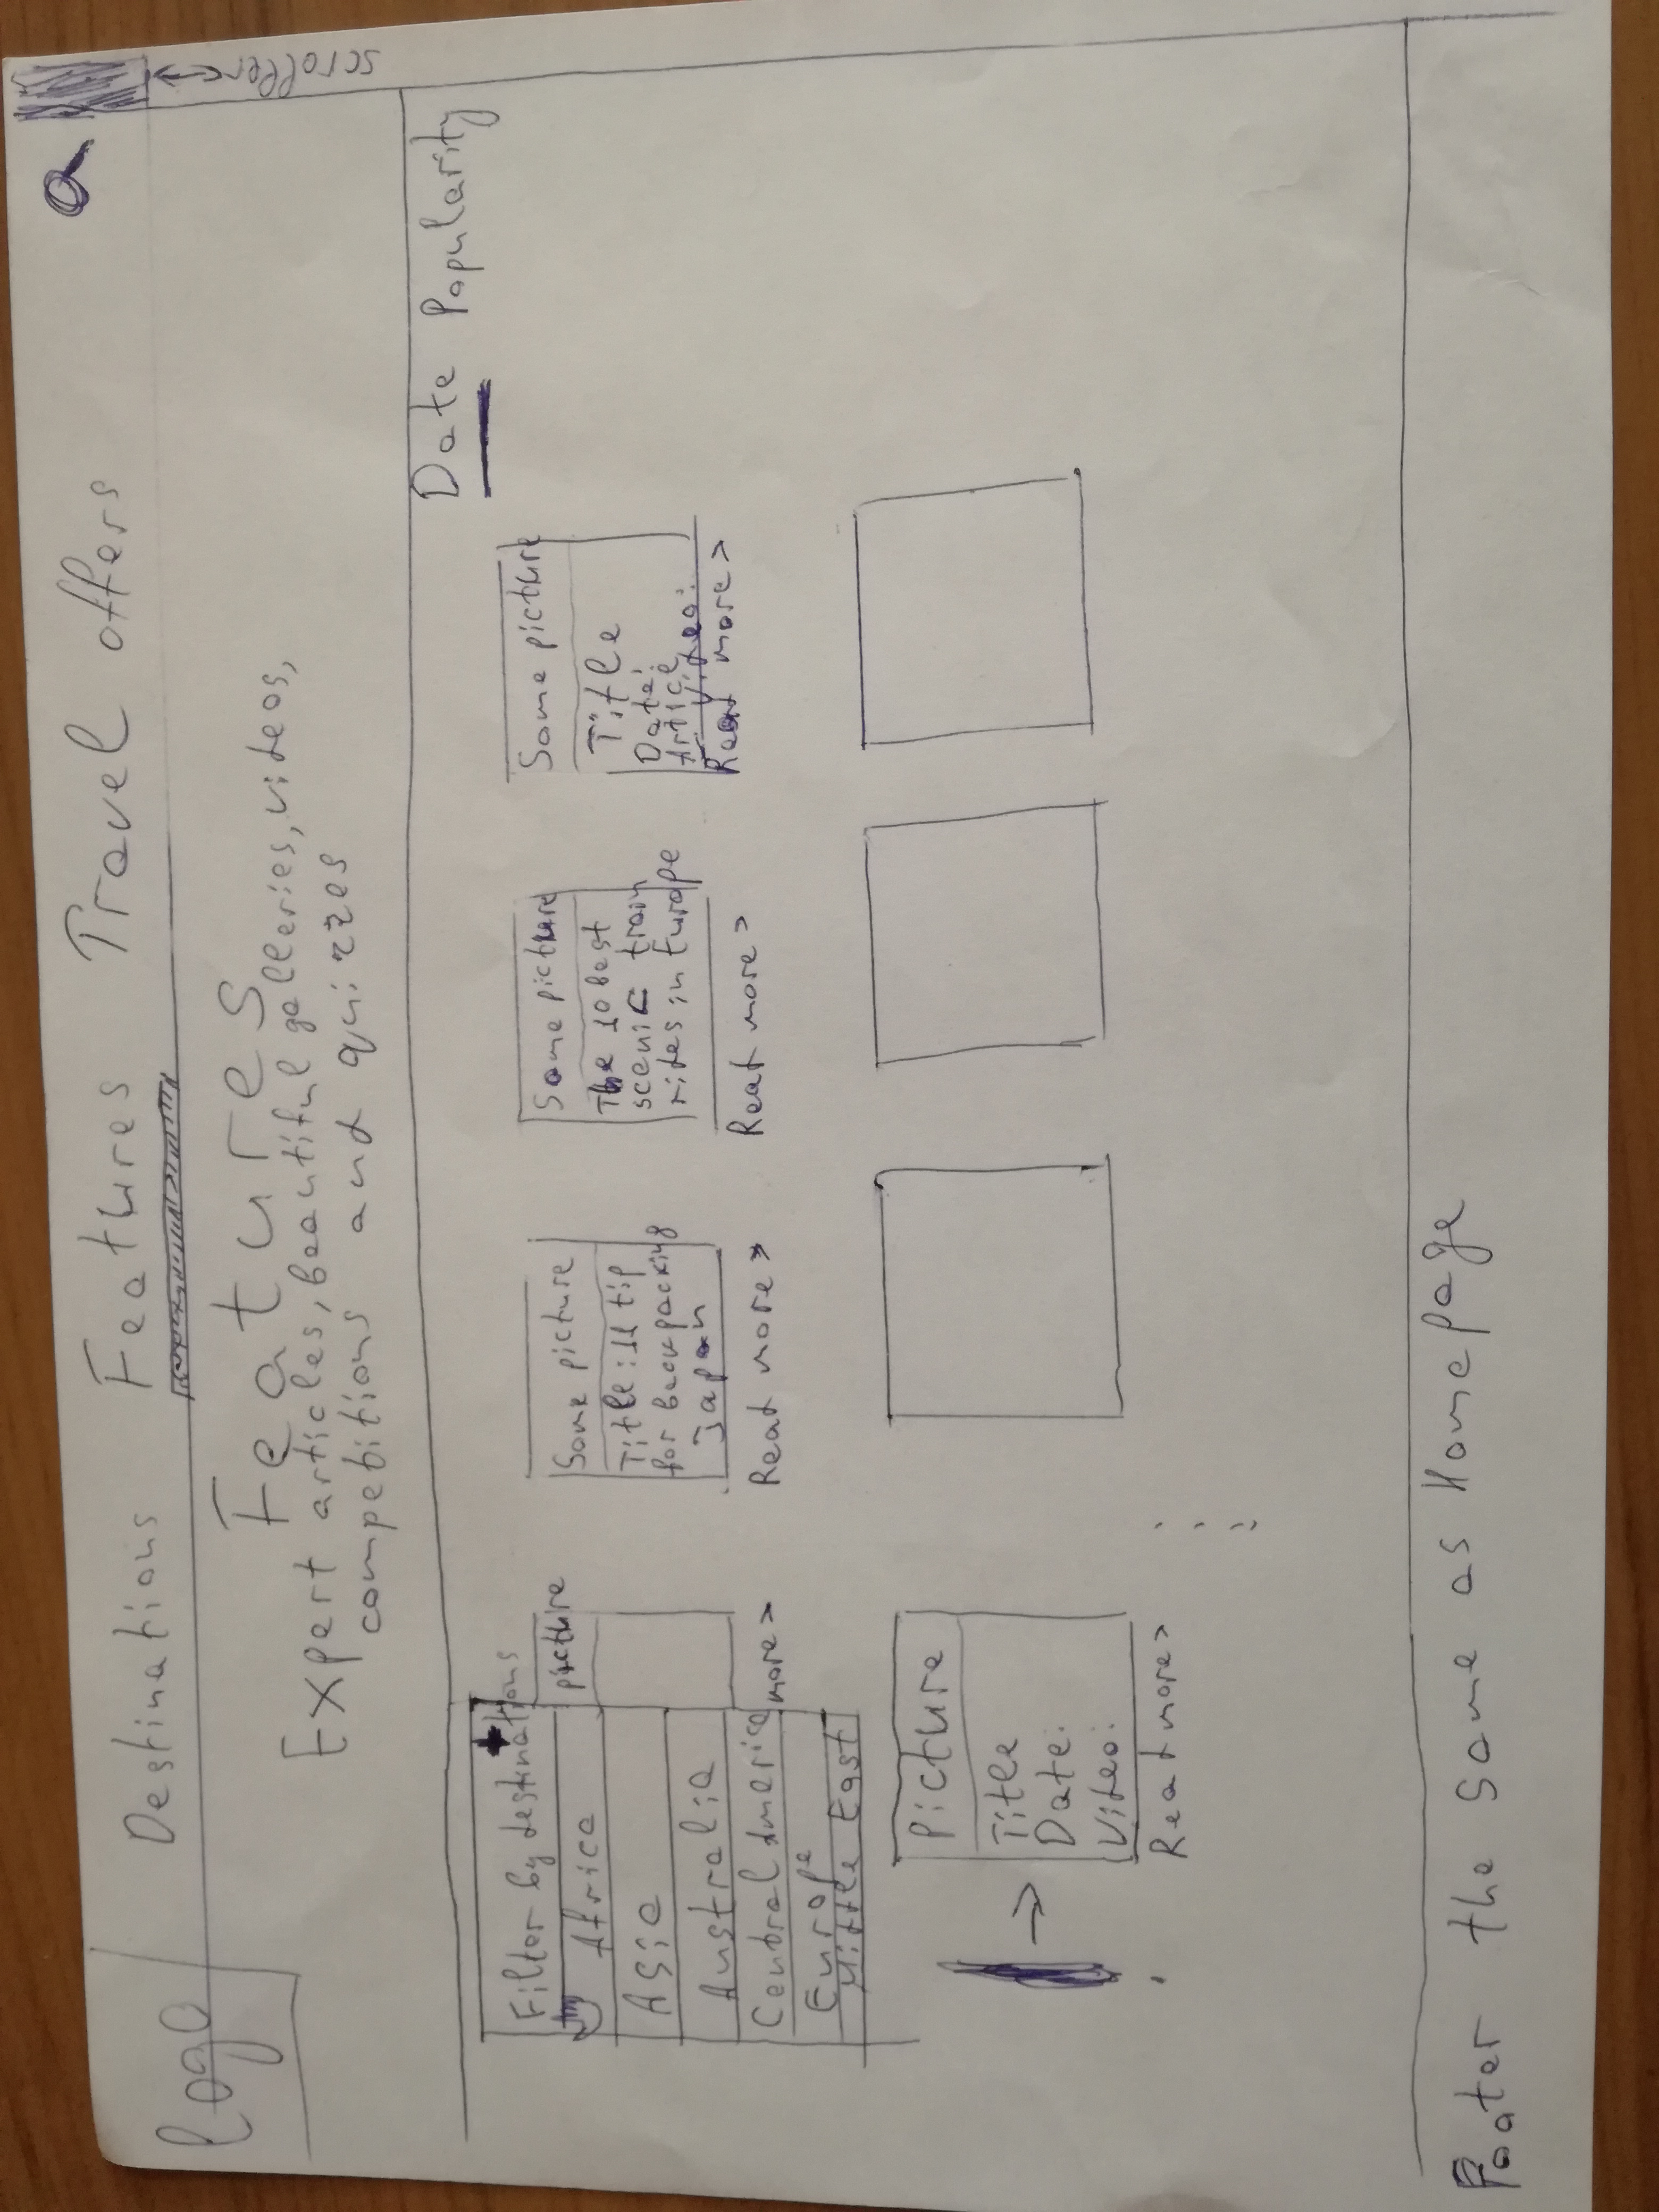 logo
Destinations Features Travel offers
scroller
Features
Expert articles, beautiful galleries, videos,
competitions and quizzes
Date Popularity
Filter by destinations
Africa
Asia
Australia
Central America
Europe
Middle East
picture
more >
Some picture
Title: 11 tip
for backpacking
Japan
Read more >
Some picture
The 10 best
scenic train
rides in Europe
Read more >
Some picture
Title
Date:
Artice
Video:
Read more >
Picture
Title
Date:
Video:
Read more >
Footer the same as Homepage